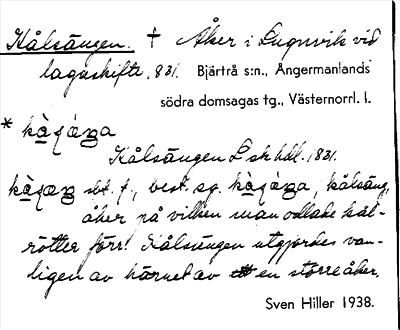 Kålsängen. † Åker i Lugnvik vid
lagaskifte. 1831. Bjärtrå s:n., Ångermanlands
södra domsagas tg., Västernorrl. l.
*
Kålsängen L sk hdl. 1831.
sbt. f., best. sg. , kålsäng,
åker på vilken man odlade kål-
rötter förr! Kålsängen utgjordes van-
ligen av hörnet av en större åker.
Sven Hiller 1938.